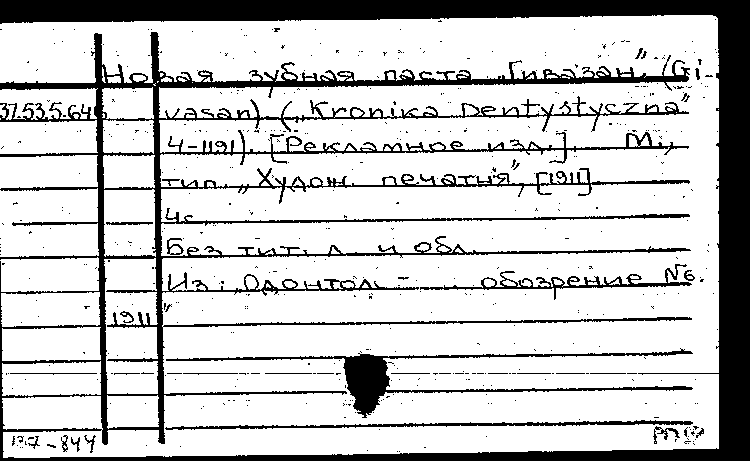 Новая зубная паста „Гивазан" (Gi-
37.53.5.646 vasan). („Kronika Dentystyczna"
4-1191). [Рекламное изд.]. М.,
тип. „Худож. печатня", [1911].
4с.
Без тит. л. и обл.
Из: „Одонтол. обозрение №6.
1911"
137-844